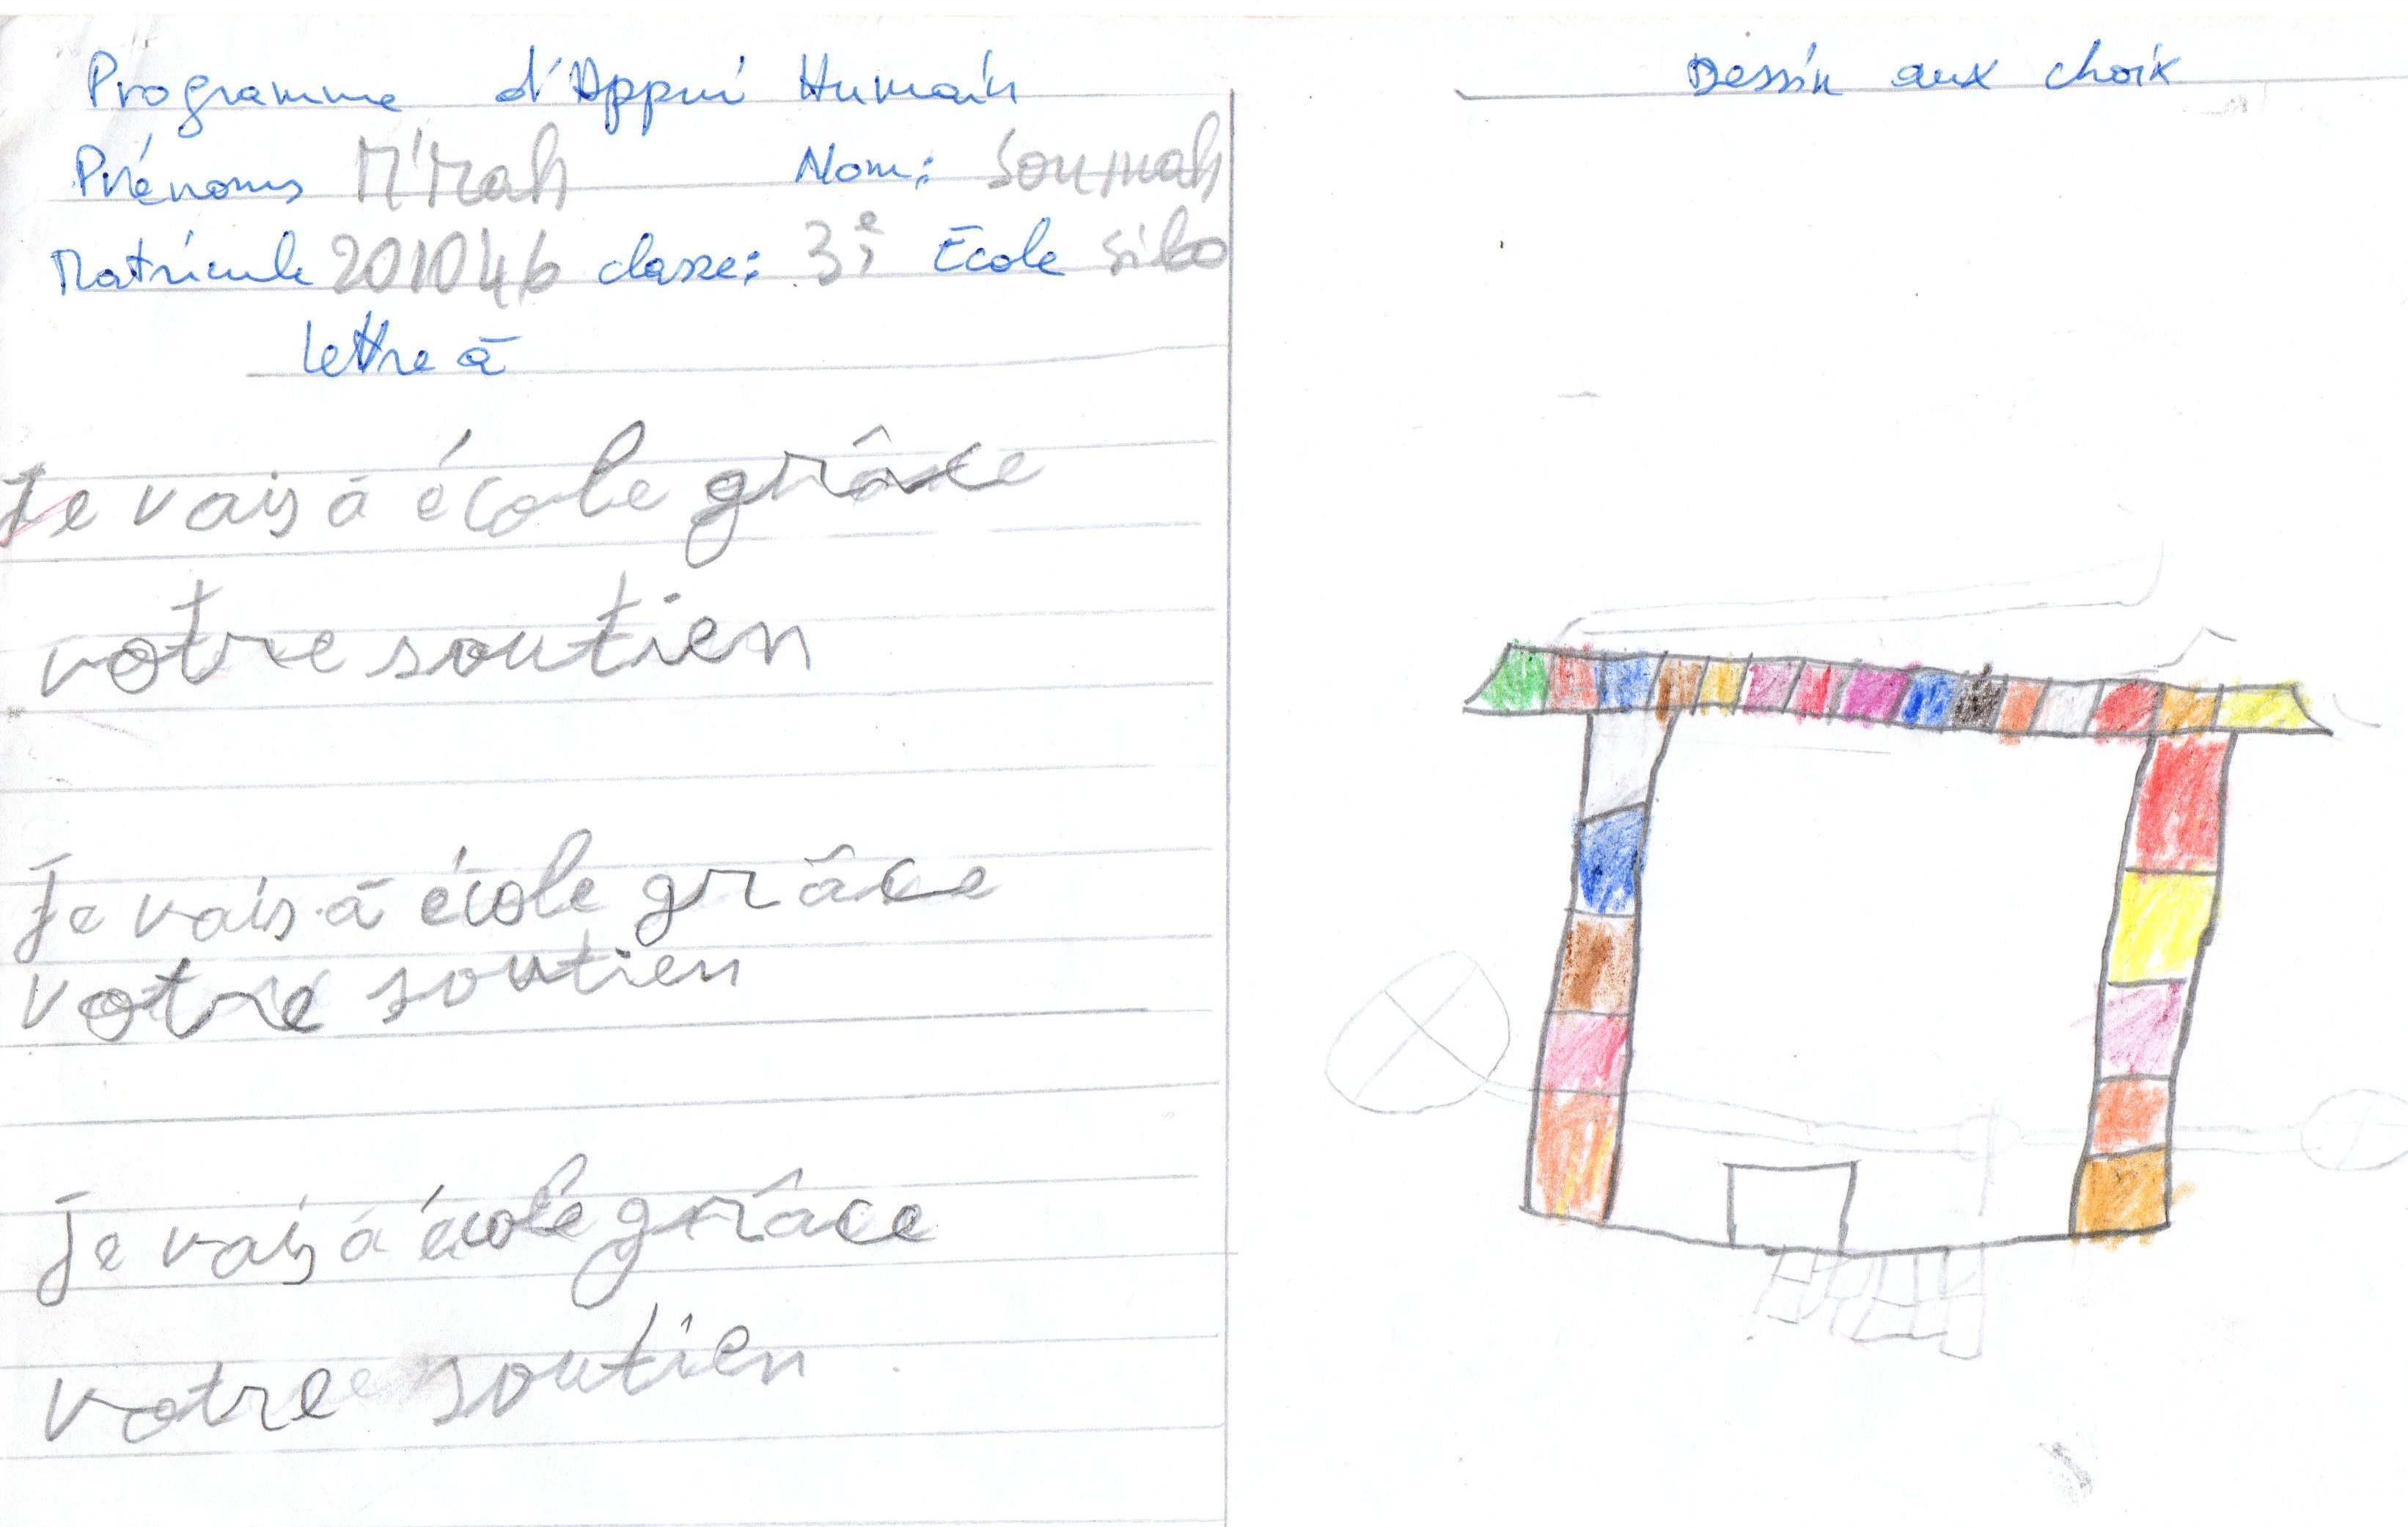 Programme d'Appui Humain
Prénoms M'Mah Nom: Soumah
Matricule 2010046 classe: 3è École Sibo
lettre à
Je vais à école grâce
votre soutien
Je vais à école grâce
votre soutien
Je vais à école grâce
votre soutien
Dessin aux choix